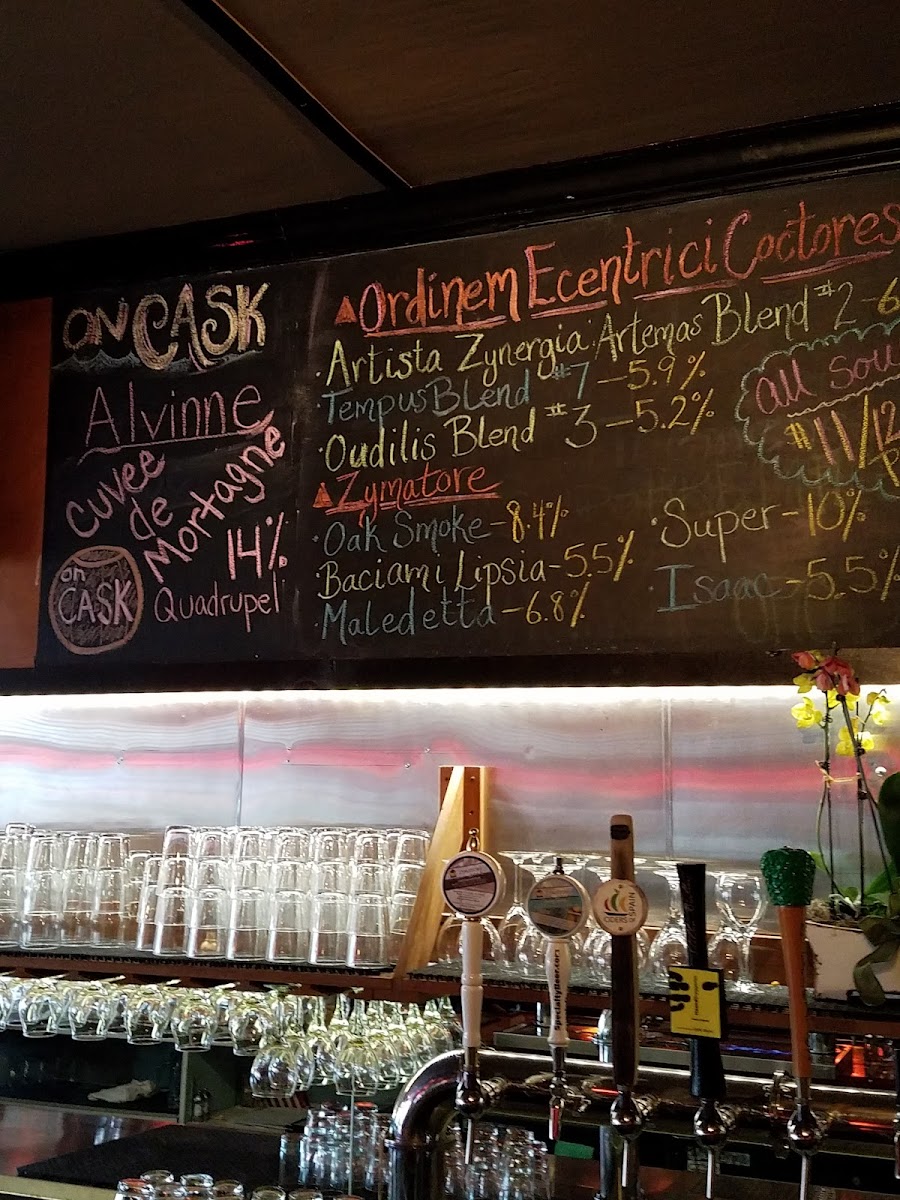 ON CASK
Alvinne
Cuvee
de
Mortagne
14%
Quadrupel
on
CASK
Ordinem Ecentrici Coctores
· Artista Zynergia: Artemas Blend #2 - 6
· Tempus Blend #7 - 5.9%
· Oudilis Blend #3 - 5.2%
all sou
$11/12
Zymatore
· Oak Smoke - 8.4%
· Baciami Lipsia - 5.5%
· Maledetta - 6.8%
· Super - 10%
· Isaac - 5.5%
CIDERS
SPAIN
SpecialtyBeer.com